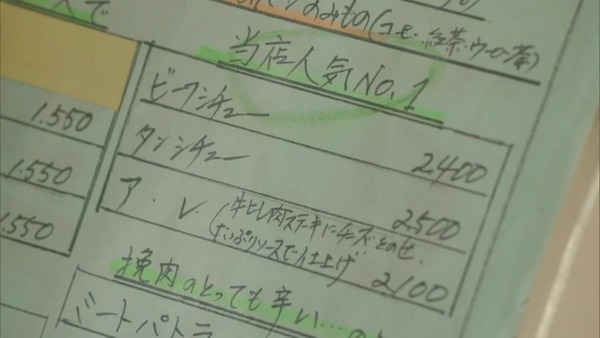 のみもの(コーヒー・紅茶・ウーロン茶)
当店人気No.1
ビーフシチュー 2.400
タンシチュー 2.500
ア.レ.(牛ヒレ肉ステーキにチーズをのせ
たっぷりソースで仕上げ 2.100
挽肉のとっても辛い…の
ミートパトラ
1.550
1.550
1.550